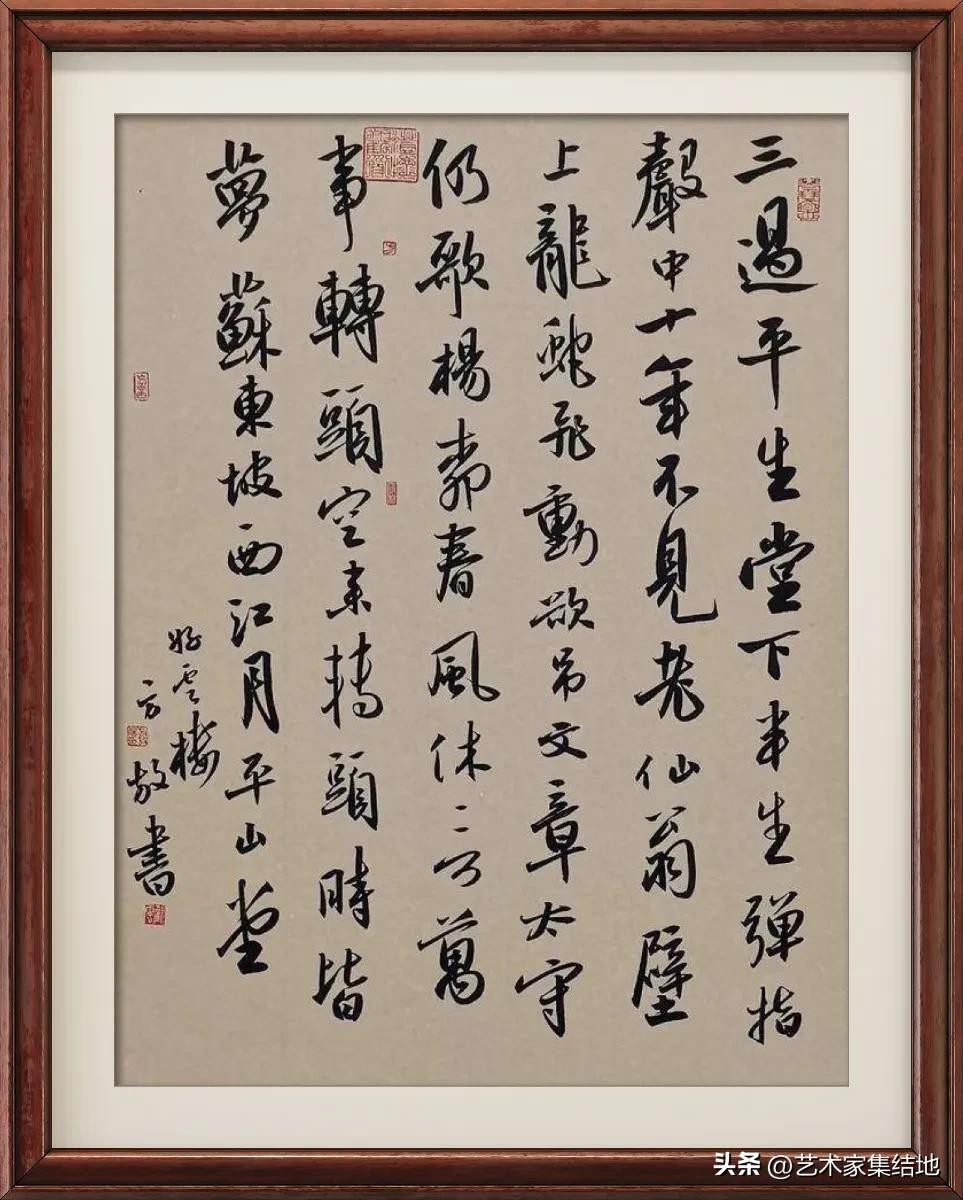 三過平生堂下半生弹指
聲中十年不見老仙翁壁
上龍蛇飛動欲吊文章太守
仍歌楊柳春風休言萬
事轉頭空未轉頭時皆
夢 蘇東坡西江月平山堂
好雲樓
一方敬書
头条 @艺术家集结地